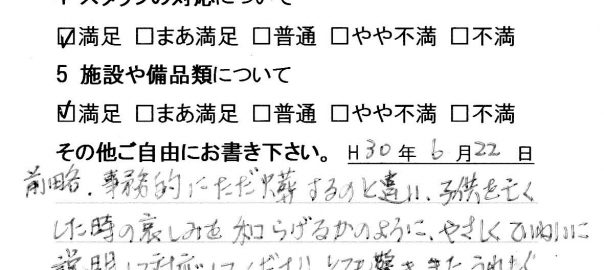 4 スタッフの対応について
☑満足 □まあ満足 □普通 □やや不満 □不満
5 施設や備品類について
☑満足 □まあ満足 □普通 □やや不満 □不満
その他ご自由にお書き下さい。 H30年 6月22日
前略、事務的にただ火葬するのと違い、子供を亡く
した時の哀しみを和らげるかのように、やさしくていねいに
説明して対応してくださり、とても驚きました